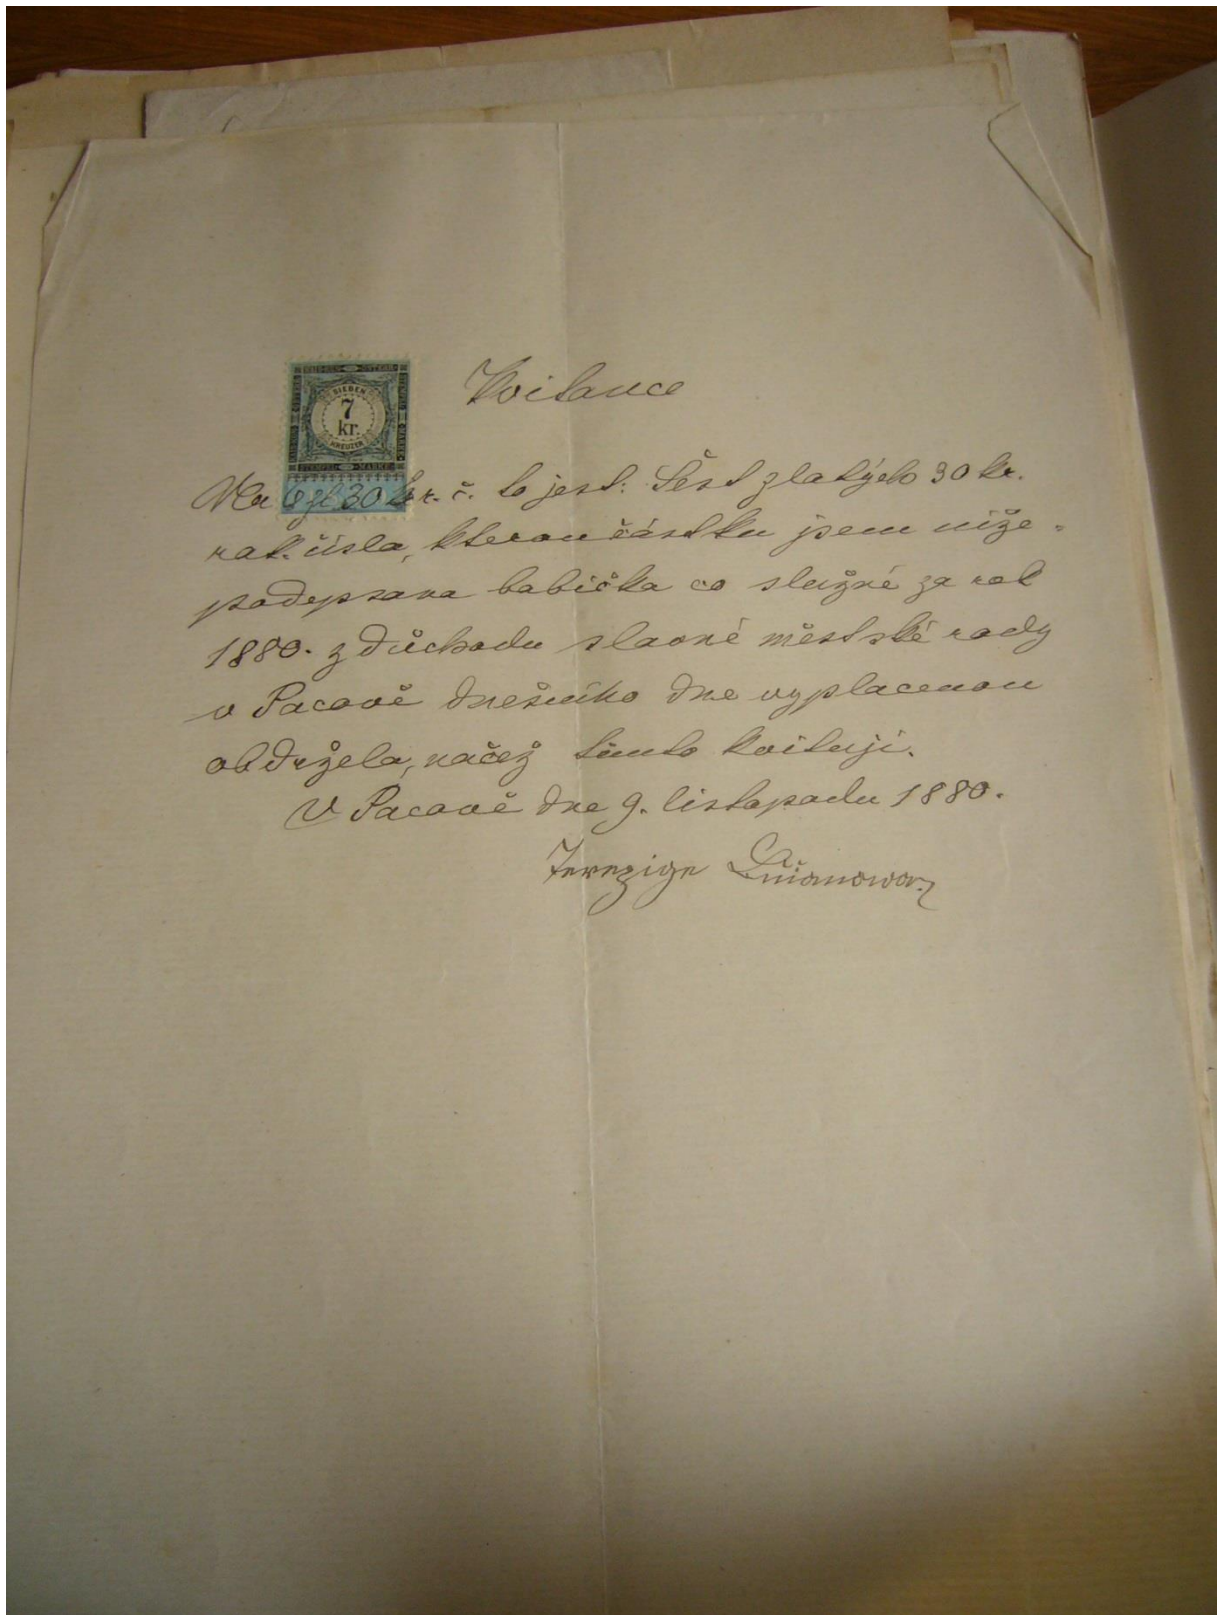 Kvitance
SIEBEN
7
kr.
KREUZER
STEMPEL MARKE
Na 6 zl 30 kr. r. č. to jest: Šest zlatých 30 kr.
rak. čísla, kterou částku jsem níže-
podepsana babička co služné za rok
1880. z důchodu slavné městské rady
v Pacově dnešního dne vyplacenou
obdržela, načež tímto kvituji.
V Pacově dne 9. listopadu 1880.
Terezige